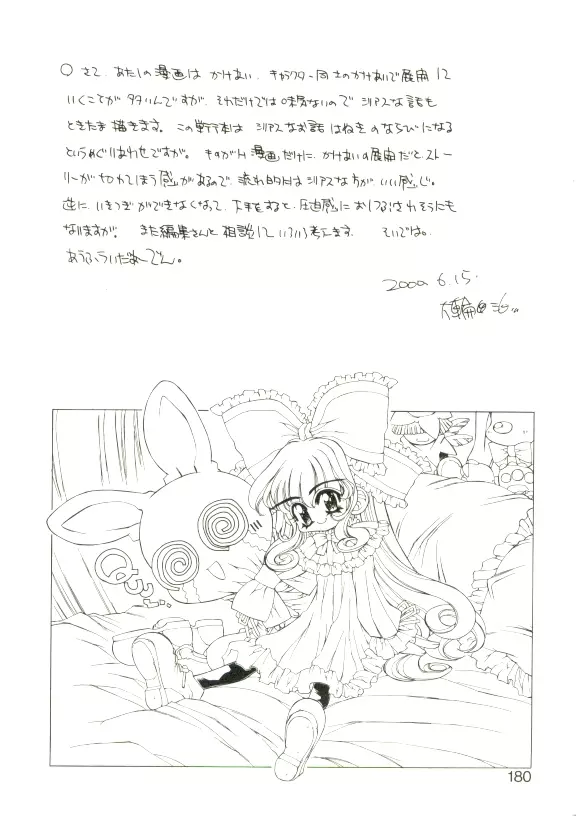 ○ さて、あたしの漫画は かけあい、キャラクター同士のかけあいで展開して
いくことが多いんですが、それだけでは味気ないので シリアスな話も
ときたま描きます。この単行本は シリアスなお話
というめぐりあわせですが。 漫画だけに、かけあいの展開だとストー
リーが切れてしまう感があるので、流れ的にはシリアスな方が、いい感じ。
逆に、いきつぎができなくなって、下手をすると、圧迫感におしつぶされそうにも
なりますが。 また編集さんと相談して いろいろ考えます。 それでは。
2000 6.15.
180